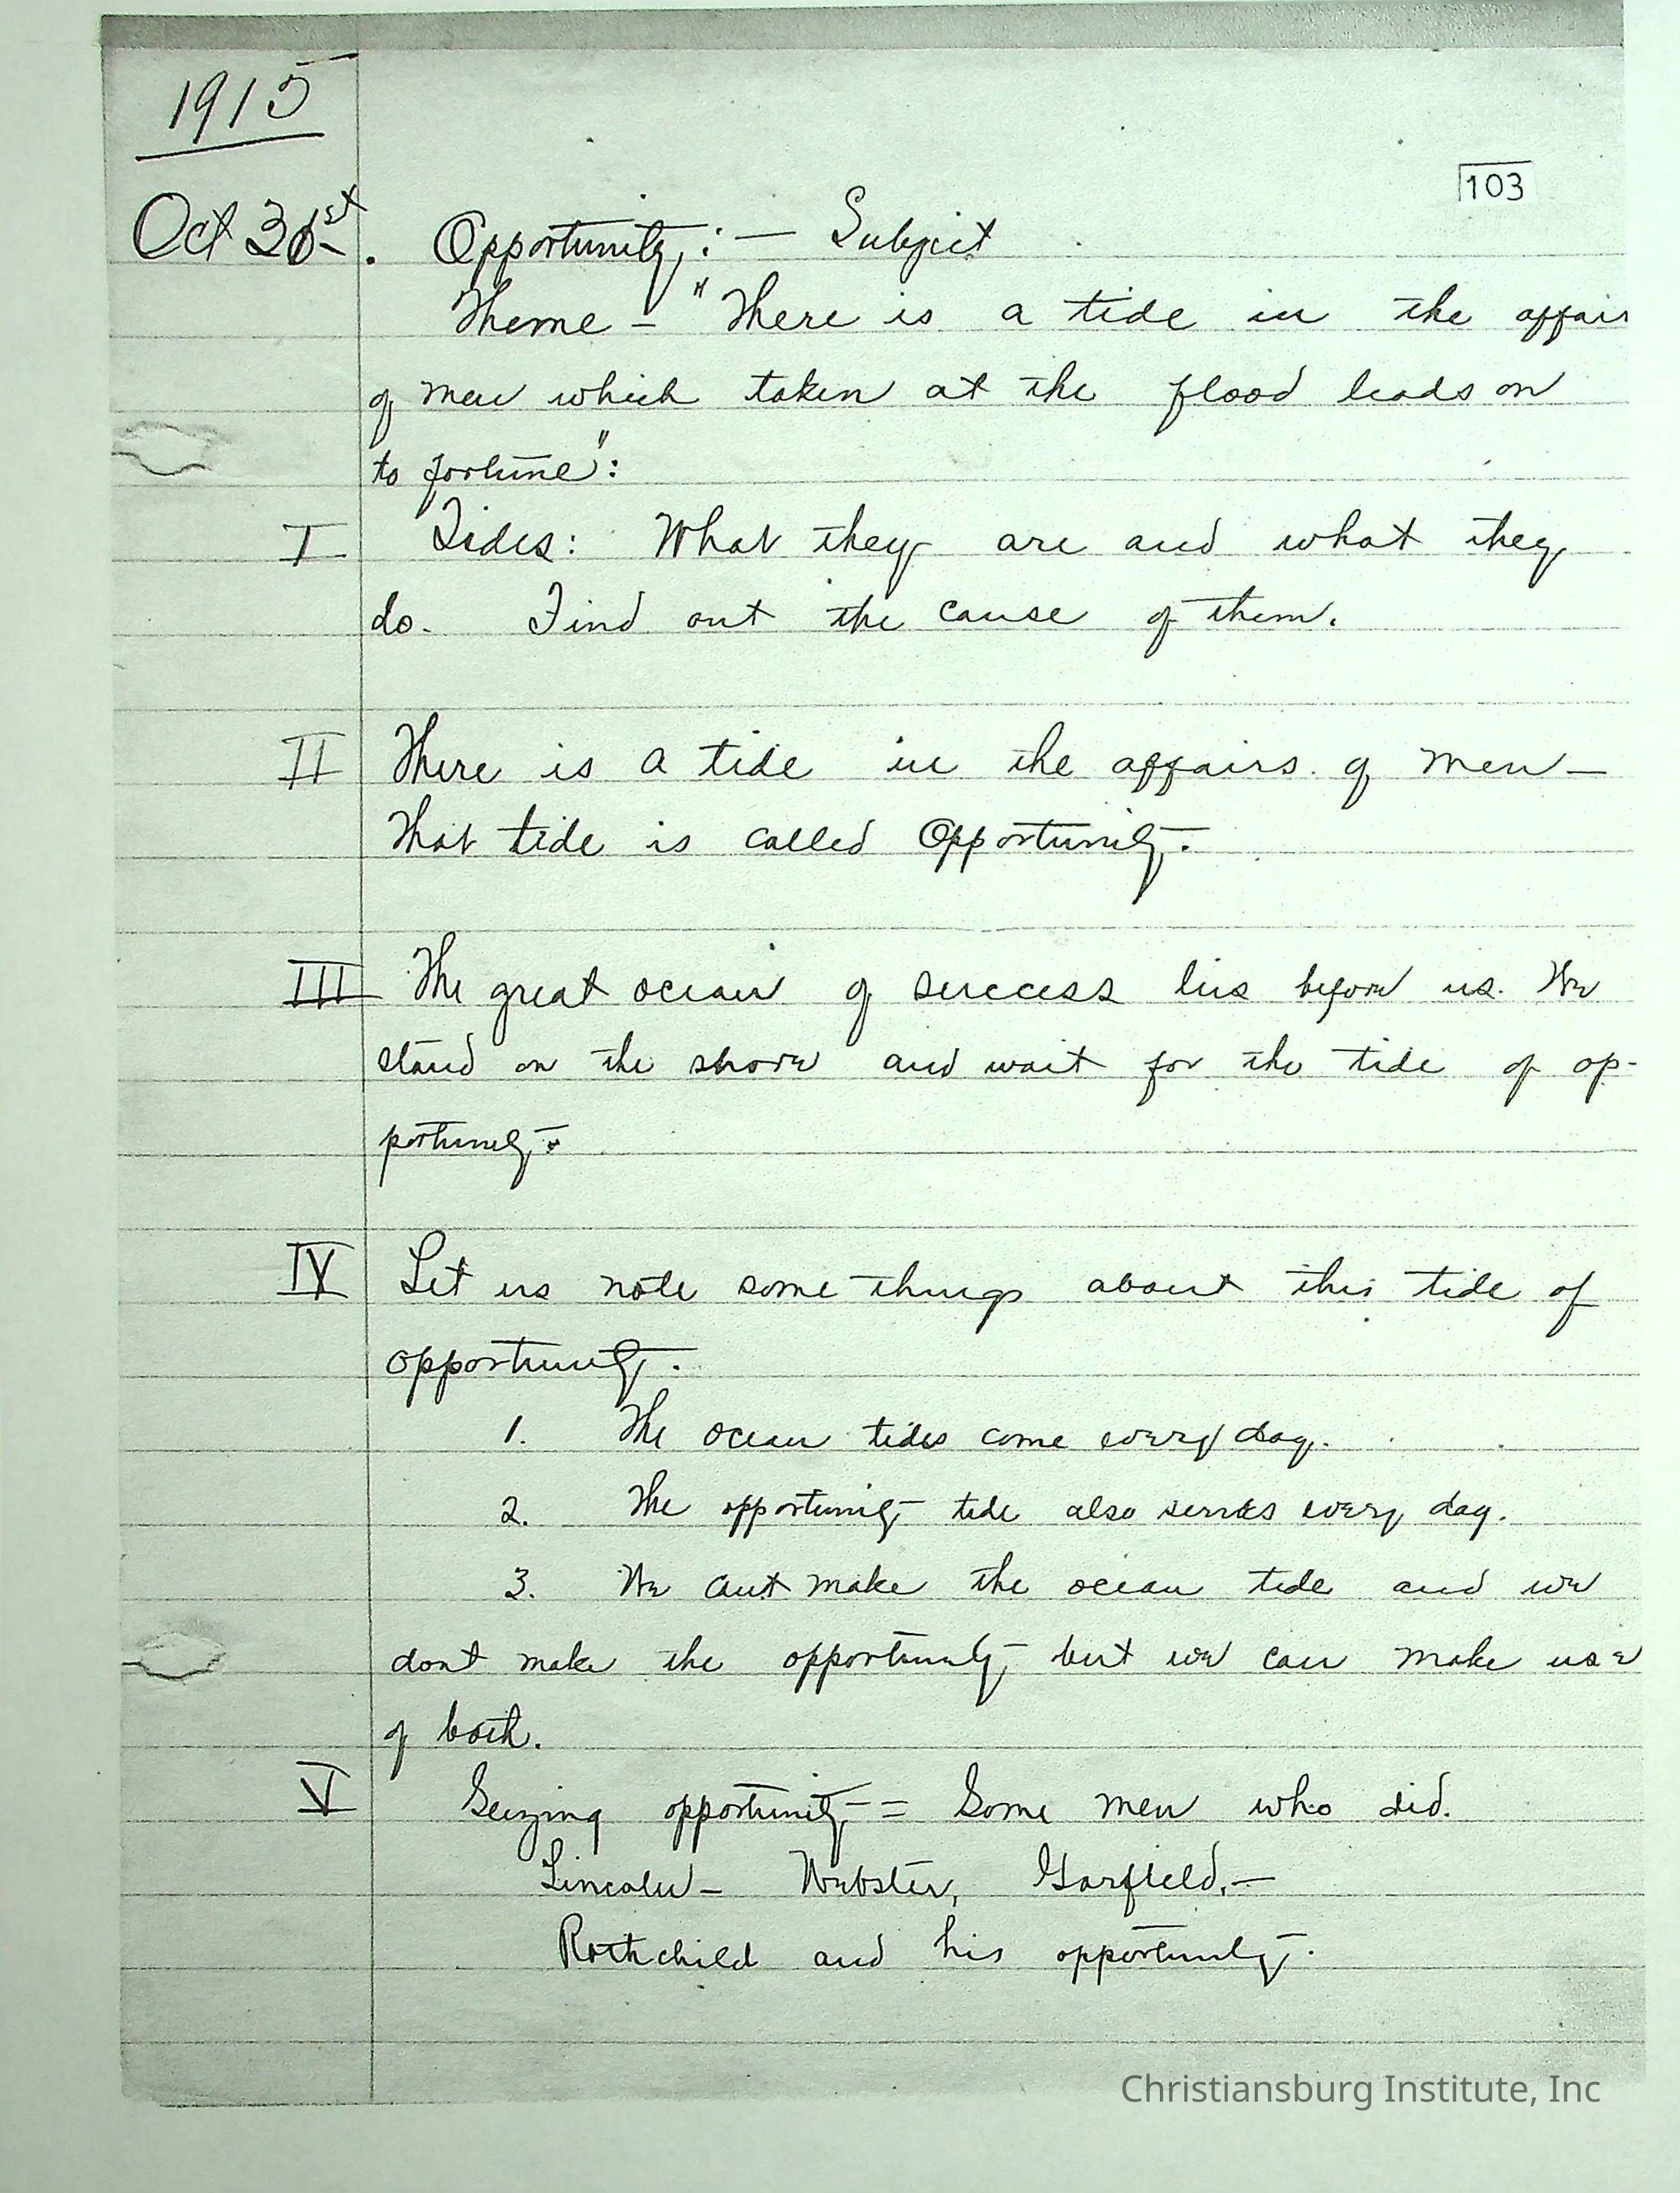 1915
103
Oct 31st. Opportunity:— Subject
Theme — "There is a tide in the affair
of men which taken at the flood leads on
to fortune":
I Tides: What they are and what they
do. Find out the cause of them.
II There is a tide in the affairs of men—
That tide is called Opportunity.
III The great ocean of success lies before us. We
stand on the shore and wait for the tide of op-
portunity.
IV Let us note some things about this tide of
opportunity.
1. The ocean tides come every day.
2. The opportunity tide also every day.
3. We cant make the ocean tide and we
dont make the opportunity but we can make use
of both.
V Seizing opportunity = Some men who did.
Lincoln — Webster, Garfield,—
Rothchild and his opportunity.
Christiansburg Institute, Inc